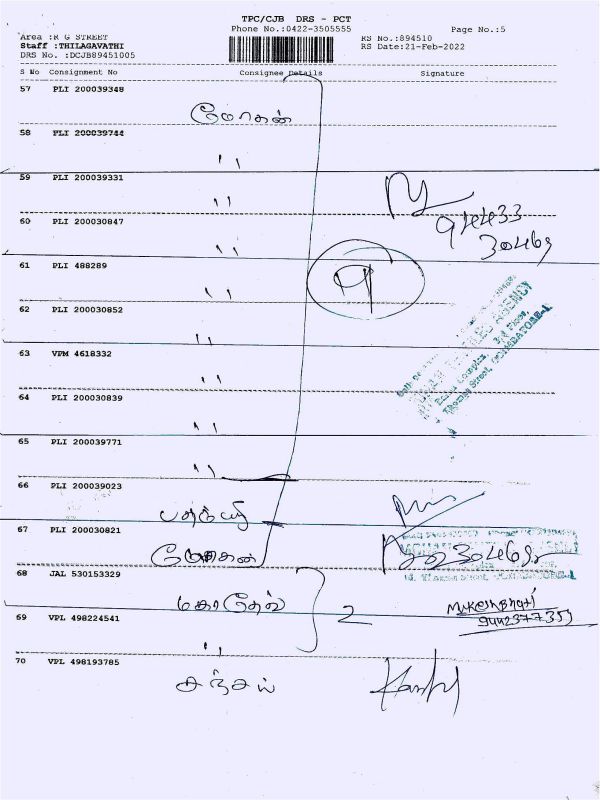 TPC/CJB DRS - PCT
Phone No.:0422-3505555
Page No.:5
Area :R G STREET
RS No.:894510
Staff :THILAGAVATHI
RS Date:21-Feb-2022
DRS No. :DCJB89451005
S No Consignment No Consignee Details Signature
57 PLI 200039348
மோகன்
58 PLI 200039744
"
59 PLI 200039331
"
60 PLI 200030847
"
61 PLI 488289
"
62 PLI 200030852
"
63 VPM 4618332
"
64 PLI 200030839
"
65 PLI 200039771
"
66 PLI 200039023
67 PLI 200030821
மோகன்
68 JAL 530153329
மகாதேவ் 2
Mukeshbhati
9442377359
69 VPL 498224541
"
70 VPL 498193785
சஞ்சய்